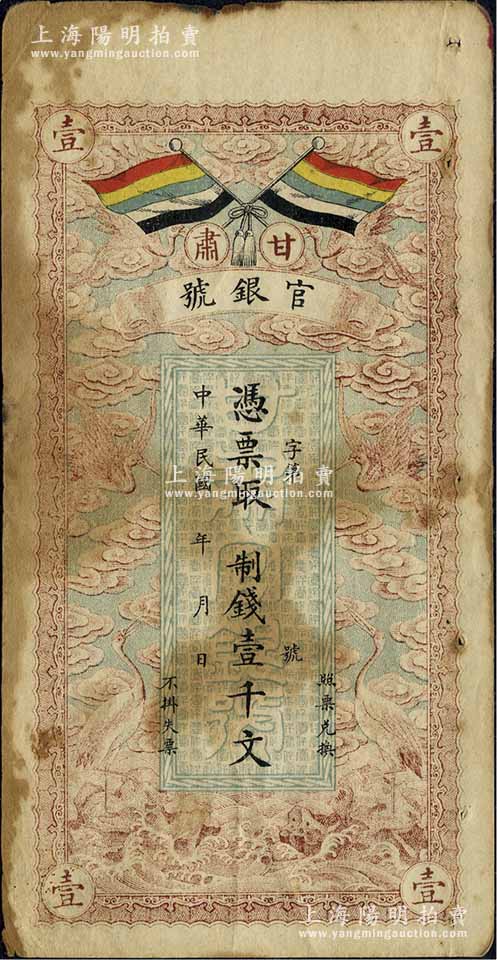 上海陽明拍賣
www.yangmingauction.com
壹
壹
甘肅
官銀號
字第 號
憑票取 制錢壹千文
中華民國 年 月 日
照票兌換
不掛失票
上海陽明拍賣
www.yangmingauction.com
壹
壹
上海陽明拍賣
www.yangmingauction.com